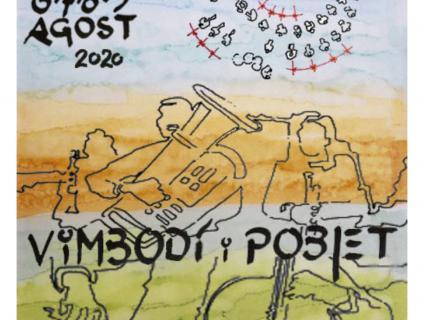 AGOST
2020
VIMBODÍ i POBLET